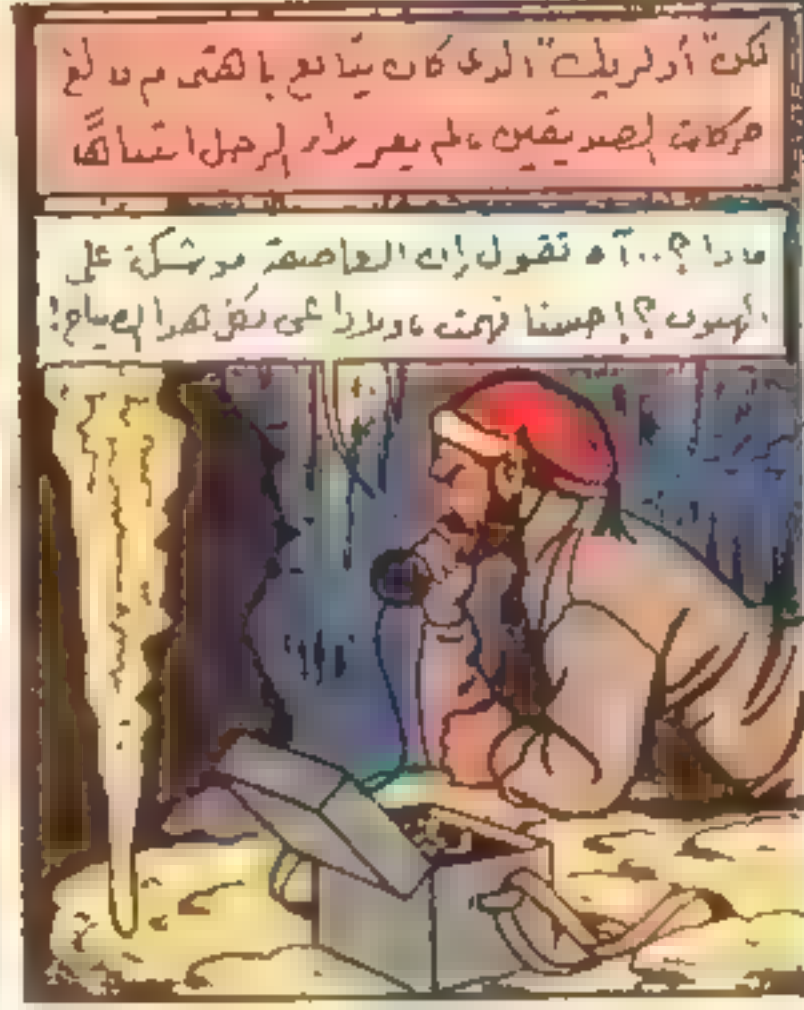 لكن "أولريك" الذى كان يتابع باهتمام بالغ
حركات الصديقين، لم يعر نداء الرجل انتباها
ماذا؟.. آه تقول إن العاصفة موشكة على
الهبوب؟! حسنا فهمت، ولماذا على كل هذا الصياح!